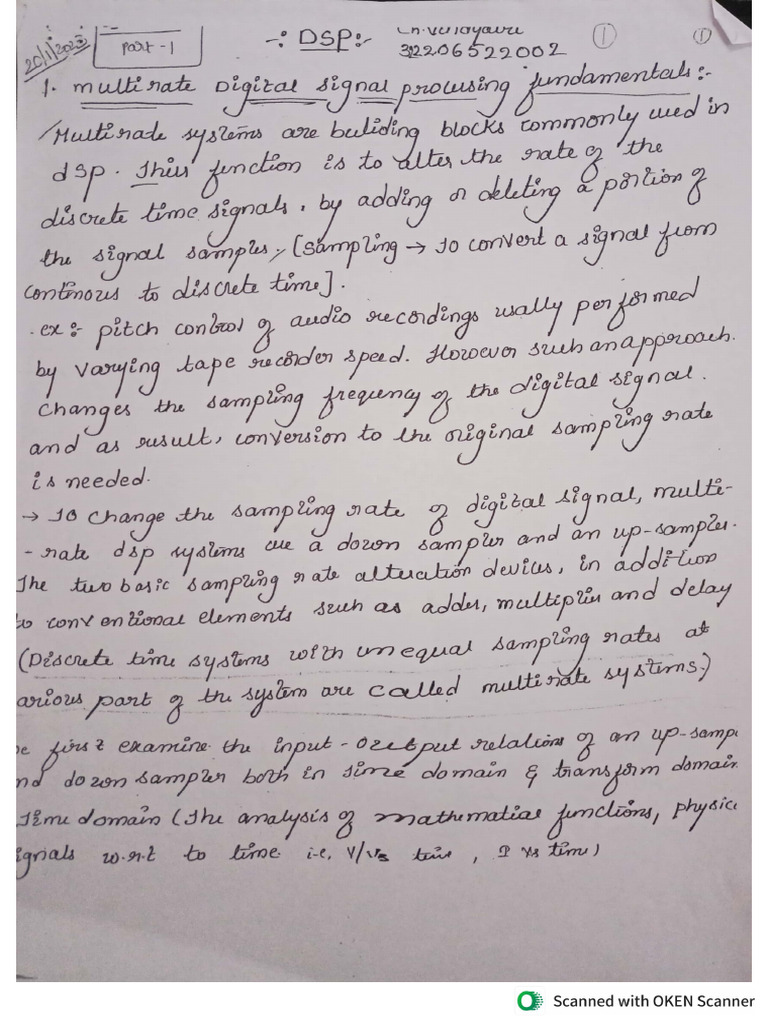 20/1/2023
Part-1
-: DSP:-
Ch.Vijayavi
322206522002
1
1
1. multirate Digital signal processing fundamentals:-
Multirade systems are buliding blocks commonly used in
dsp. Thier function is to alter the rate of the
discrete time signals, by adding or deleting a portion of
the signal samples, [Sampling → To convert a signal from
continous to discrete time].
ex:- pitch control of audio recordings usally performed
by varying tape recorder speed. However such an approach.
changes the sampling frequency of the digital signal.
and as result, conversion to the original sampling rate
is needed.
→ To change the sampling rate of digital signal, multi-
-rate dsp systems use a down sampler and an up-sampler.
The two basic sampling rate alteration devices, in addition
to conventional elements such as adder, multiplier and delay
(Discrete time systems with unequal sampling rates at
arious part of the system are called multirate systems.)
e first examine the input-output relations of an up-samp
nd down sampler both in time domain & transform domain
Time domain (The analysis of mathematical functions, physic
ignals w.r.t to time i.e, V/vs time, I vs time)
Scanned with OKEN Scanner